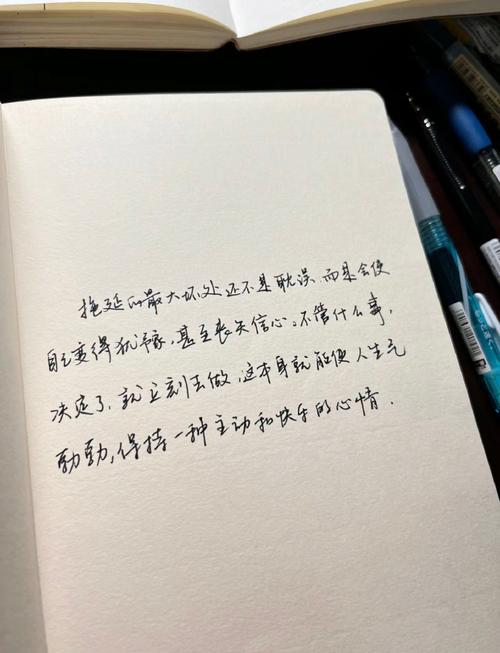 拖延的最大坏处还不是耽误,而是会使
自己变得犹豫,甚至丧失信心。不管什么事,
决定了,就立刻去做,这本身就能使人生气
勃勃,保持一种主动和快乐的心情.